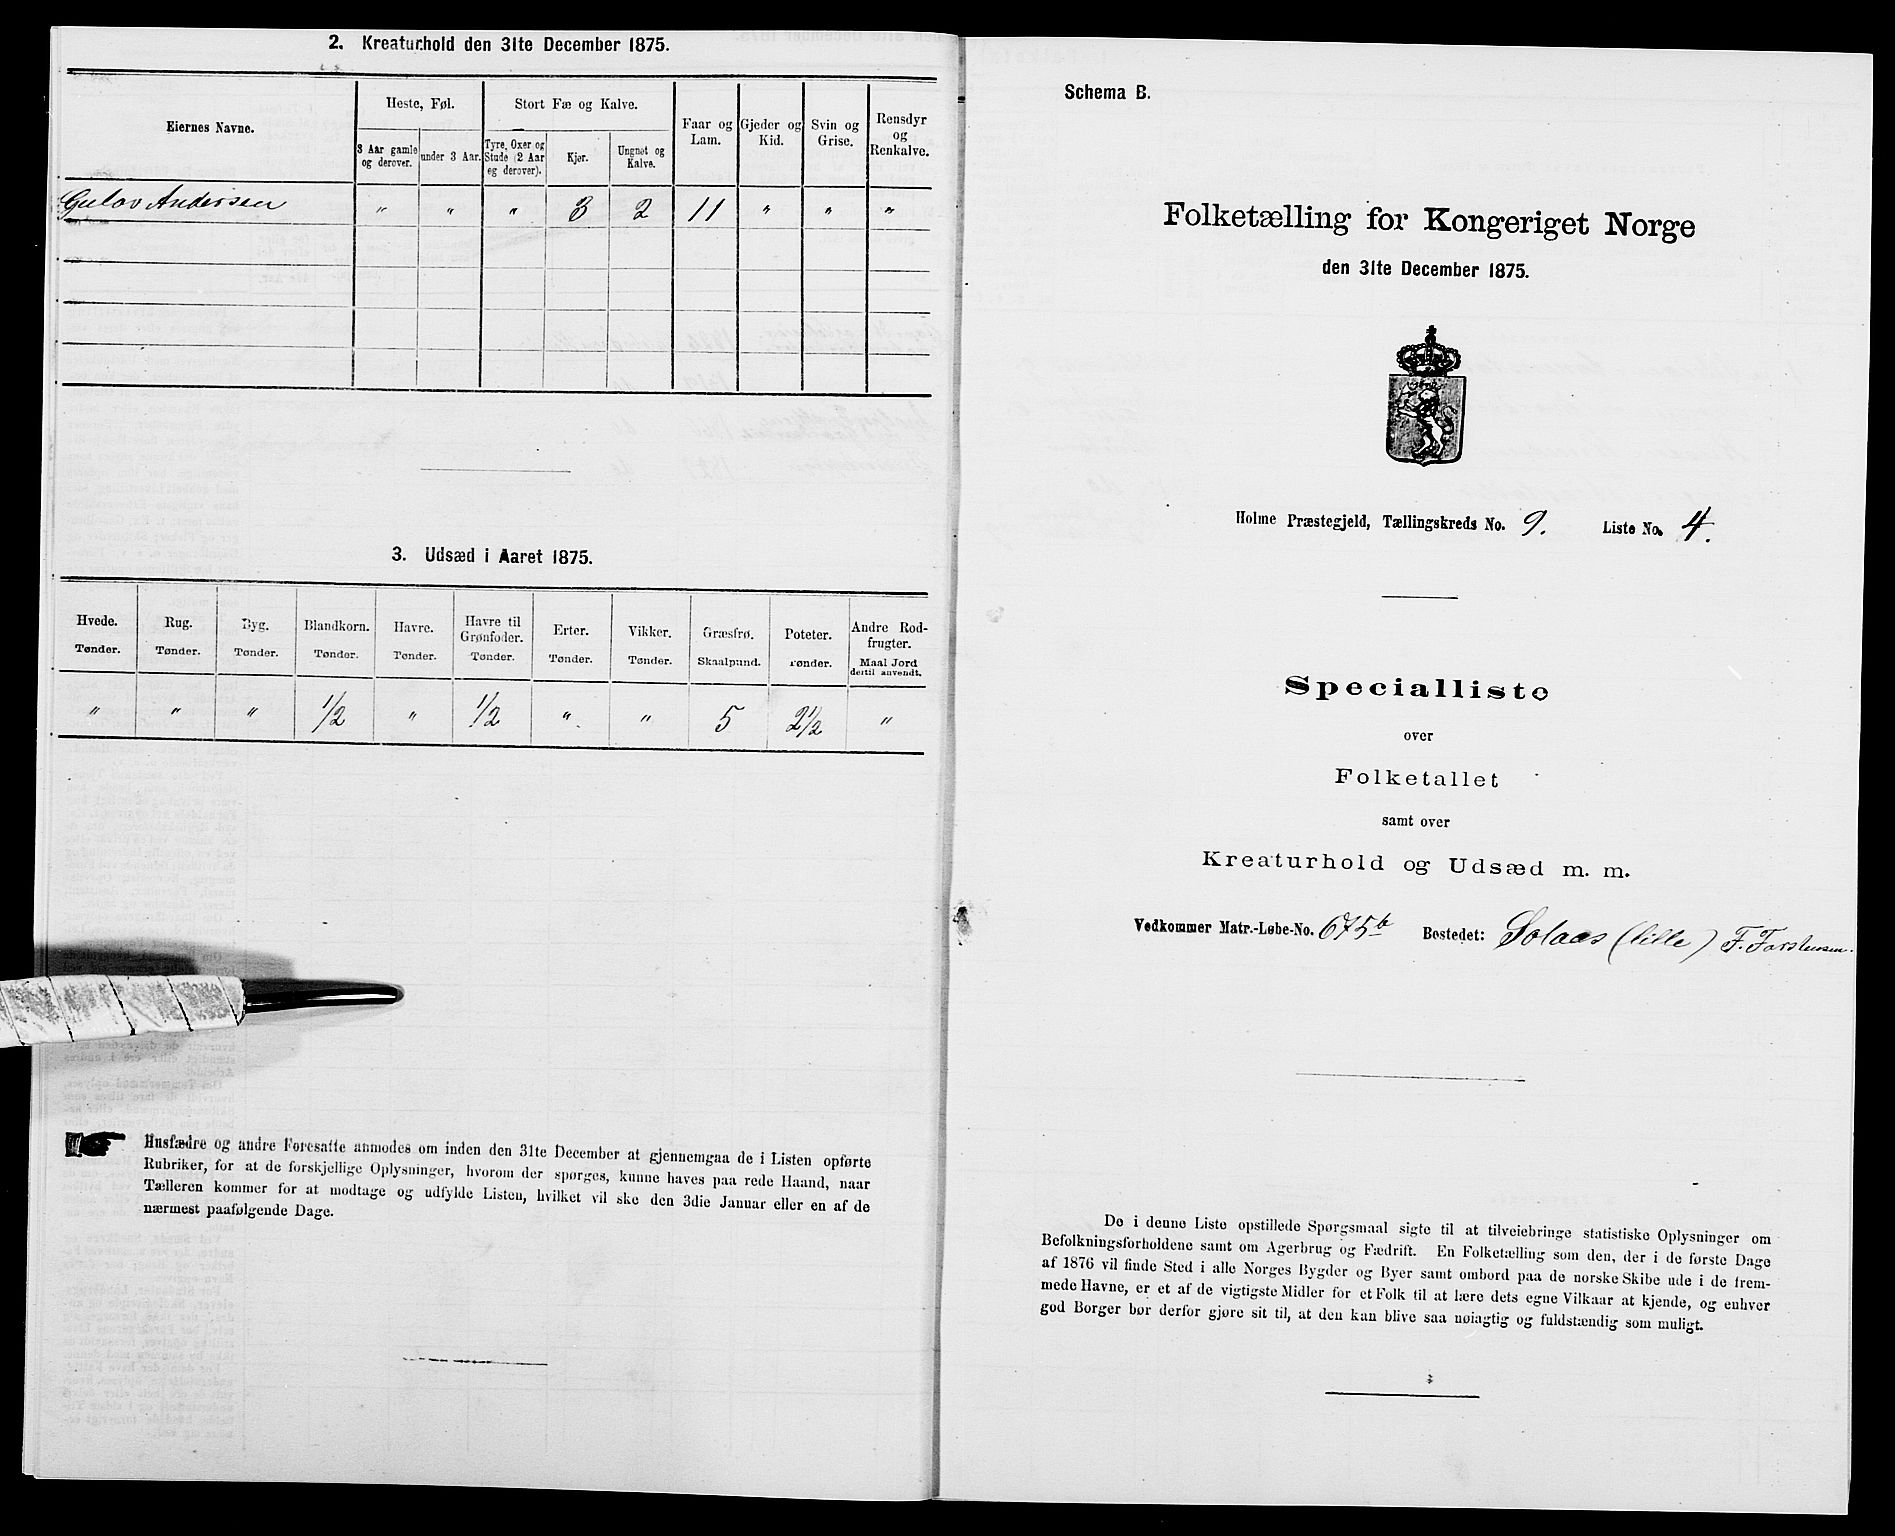 2. Kreaturhold den 31te December 1875.
Eiernes Navne.
Heste, Føl.
Stort Fæ og Kalve.
Faar og Lam.
Gjeder og Kid.
Svin og Grise.
Rensdyr og Renkalve.
3 Aar gamle og derover.
under 3 Aar.
Tyre, Oxer og Stude (2 Aar og derover).
Kjør.
Ungnøt og Kalve.
Gulov Andersen " " " 3 2 11 " " "
3. Udsæd i Aaret 1875.
Hvede. Rug. Byg. Blandkorn. Havre. Havre til Grønfoder. Erter. Vikker. Græsfrø. Poteter. Andre Rodfrugter.
Tønder. Tønder. Tønder. Tønder. Tønder. Tønder. Tønder. Tønder. Skaalpund. Tønder. Maal Jord dertil anvendt.
" " " 1/2 " 1/2 " " 5 2 1/2 "
Husfædre og andre Foresatte anmodes om inden den 31te December at gjennemgaa de i Listen opførte
Rubriker, for at de forskjellige Oplysninger, hvorom der spørges, kunne haves paa rede Haand, naar
Tælleren kommer for at modtage og udfylde Listen, hvilket vil ske den 3die Januar eller en af de
nærmest paafølgende Dage.
Schema B.
Folketælling for Kongeriget Norge
den 31te December 1875.
Holme Præstegjeld, Tællingskreds No. 9. Liste No. 4.
Specialliste
over
Folketallet
samt over
Kreaturhold og Udsæd m. m.
Vedkommer Matr.-Løbe-No. 675b Bostedet: Solaas (lille) F. Torstensen.
De i denne Liste opstillede Spørgsmaal sigte til at tilveiebringe statistiske Oplysninger om
Befolkningsforholdene samt om Agerbrug og Fædrift. En Folketælling som den, der i de første Dage
af 1876 vil finde Sted i alle Norges Bygder og Byer samt ombord paa de norske Skibe ude i de frem-
mede Havne, er et af de vigtigste Midler for et Folk til at lære dets egne Vilkaar at kjende, og enhver
god Borger bør derfor gjøre sit til, at den kan blive saa nøiagtig og fuldstændig som muligt.